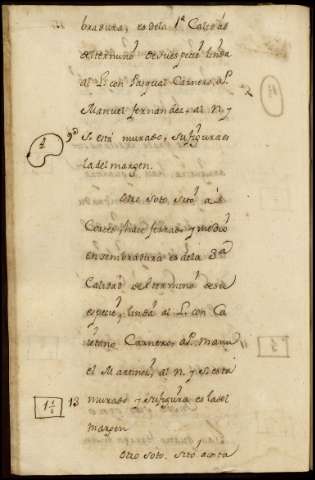 bradura, es de la 1ª Calidad
del termino de su especie linda
al L. con Pasqual Carnero, al P.
Manuel fernandez, al N. y
S. esta murado, su figura es
la del margen.
Otro Soto, sito a
Cortes haze ferrado y medio
en sembradura es de la 3ª
Calidad del termino de su
especie, linda al L. con Ca
Carnero, al P. Manu
el Martinez, al N. y S. esta
13 murado y su figura es la del
1 1/2
margen
Otro Soto, sito